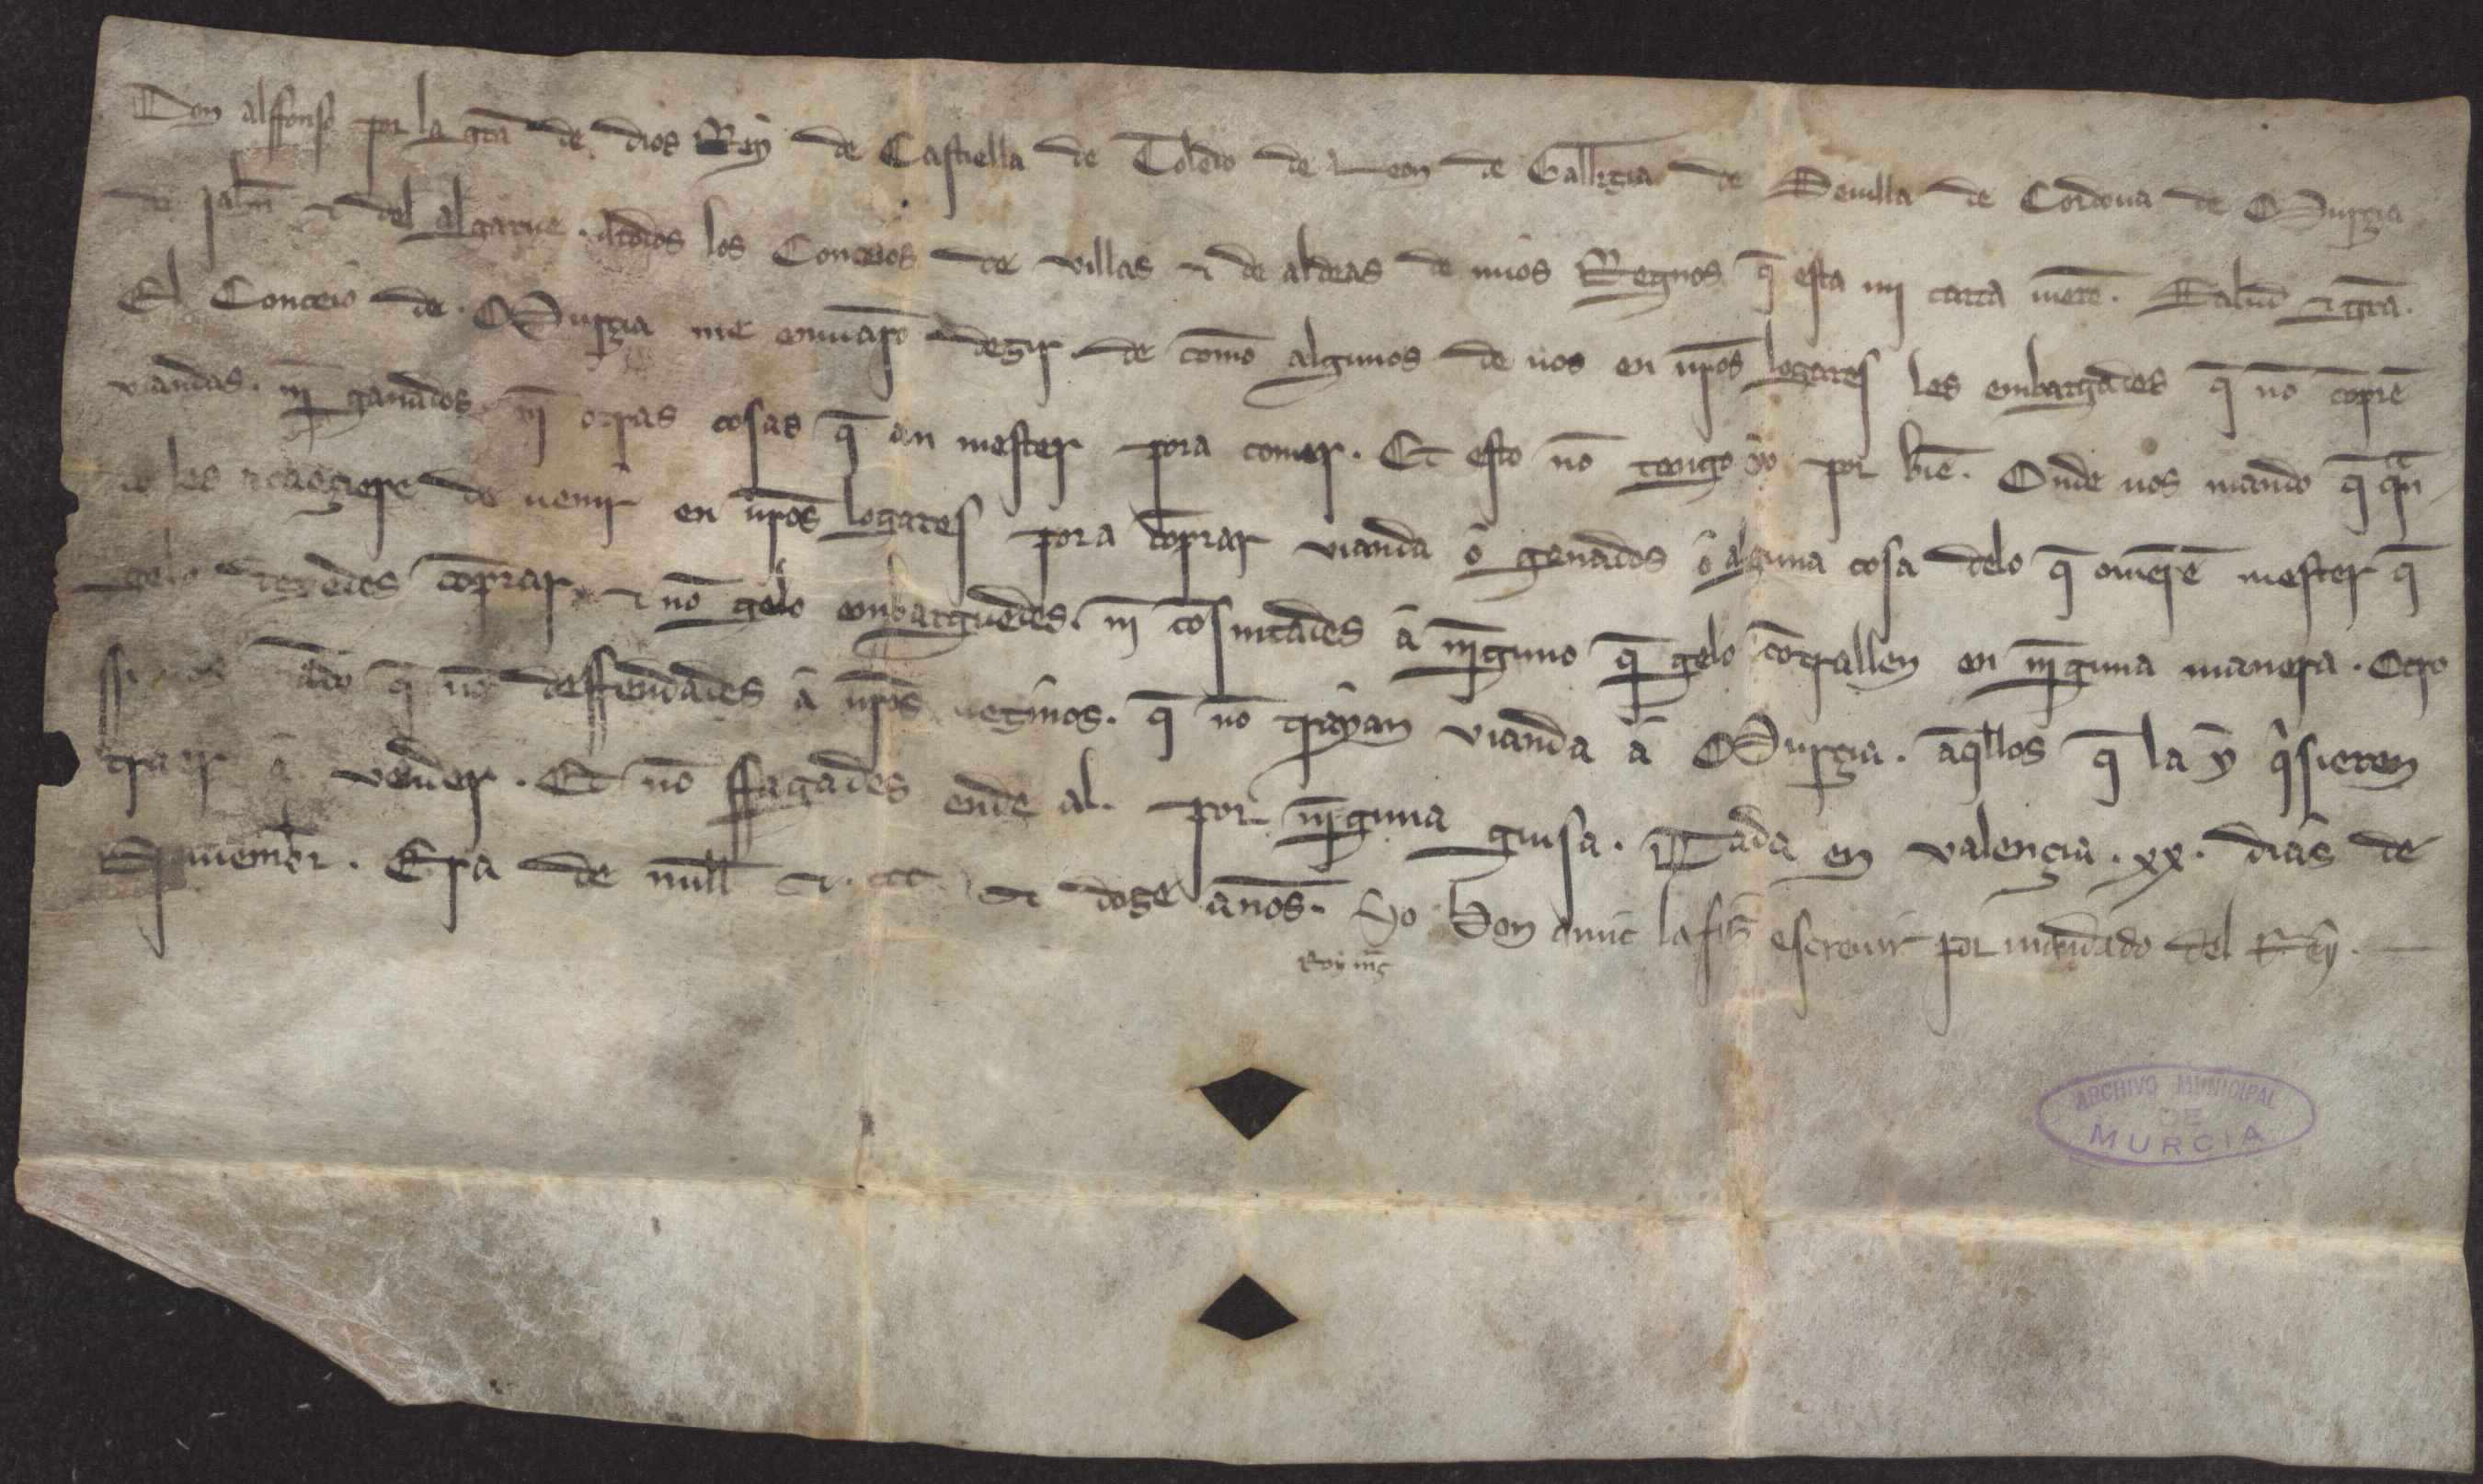 Don alffonso por la gr̃a de dios Rey de Castiella de Toledo de Leon de Gallizia de Seuilla de Cordoua de Murçia
de Jahñ ⁊ del algarue. Atodos los Conceios de villas ⁊ de aldeas de mios Regnos q̃ esta mi carta uierẽ. Salud ⁊ gr̃a.
El Conceio de Murçia me enuiarõ dezir de como algunos de uos en ur̃os logares les enbargades q̃ nõ cõprẽ
viandas. nĩ ganados nĩ otras cosas q̃ an mester pora comer. Et esto nõ tengo yo por biẽ. Onde uos mando q̃ qñ
do les acaeçiere de uenir en ur̃os logares pora cõprar uianda o ganados o alguna cosa delo q̃ ouierẽ mester q̃
gelo dexedes cõprar ⁊ nõ gelo enbarguedes. nĩ cõsintades a nĩguno q̃ gelo cõtrallen en nĩguna manera. Otro
ssi ado q̃ nõ deffendades a ur̃os uezinos. q̃ nõ trayan vianda a Murçia. aq̃llos q̃ la y q̉sieren
traer a vender. Et nõ ffagades ende al. por nĩguna guisa. Dada en valençia. xx. dias de
Nouiembr̃. Era de mill ⁊. ccc. ⁊ doze annos. yo don la fiz escreuir por mandado del Rey.
Roy mr̃z
ARCHIVO MUNICIPAL
DE
MURCIA